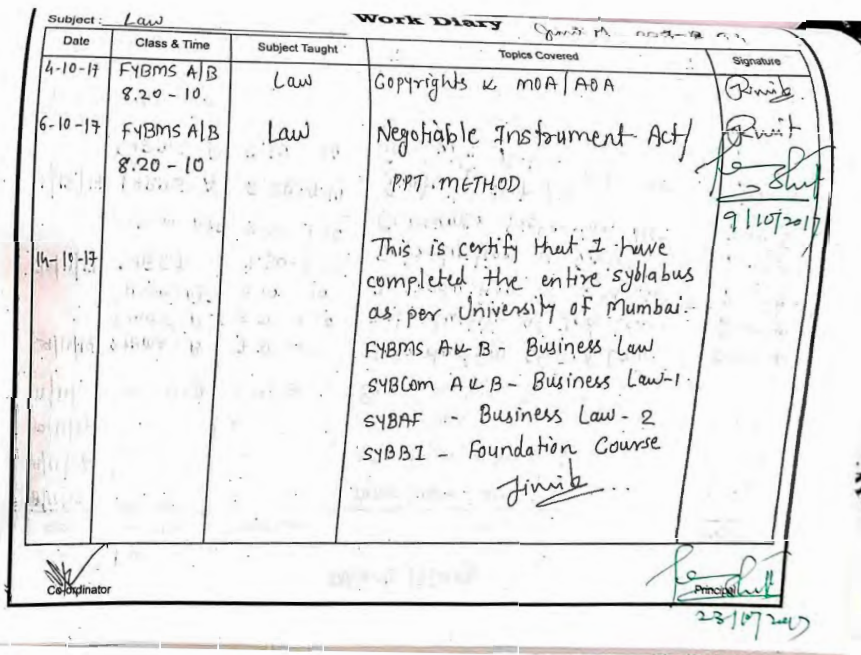 Subject : Law Work Diary
Date Class & Time Subject Taught Topics Covered Signature
4-10-17 FYBMS A/B Law Copyrights & MOA/AOA
8.20 - 10
6-10-17 FYBMS A/B Law Negotiable Instrument Act/
8.20 - 10 PPT METHOD
9/10/2017
14-10-17 This is certify that I have
completed the entire syllabus
as per University of Mumbai.
FYBMS A & B - Business Law
SYBCom A & B - Business Law-1
SYBAF - Business Law - 2
SYBBI - Foundation Course
Jimit
Co-ordinator Principal
23/10/2017